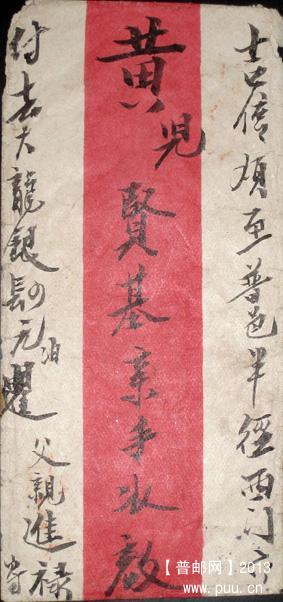 吉信煩至普邑半徑西門
黃兒賢基親手收啟
付去大龍銀元
父親進祿寄
【普邮网】2013
www.puu.cn